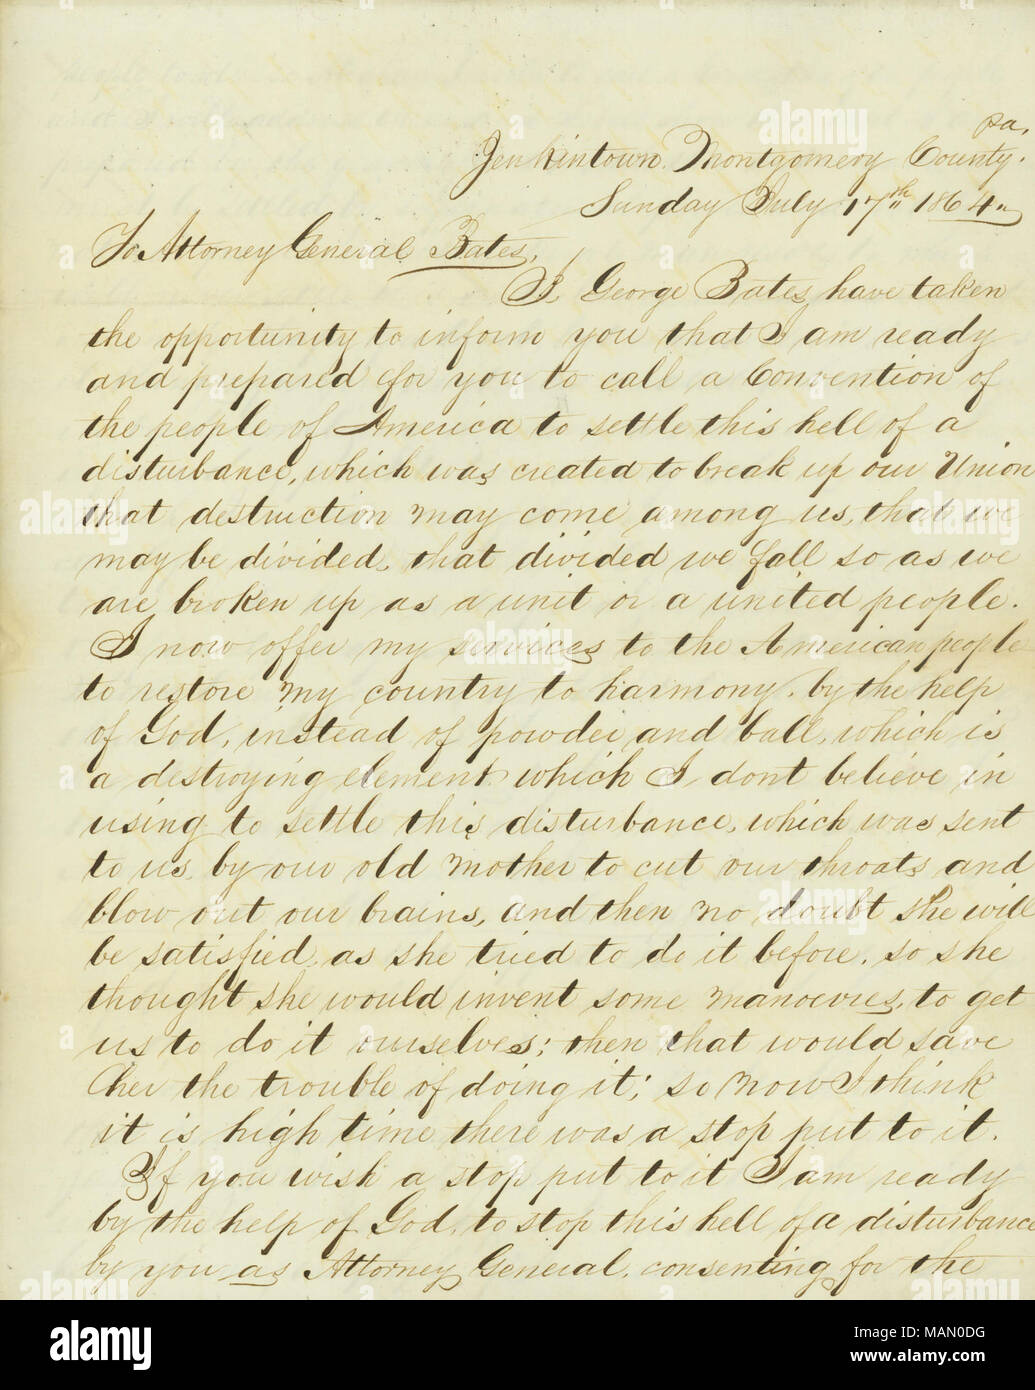 pa.
Jenkintown. Montgomery County.
Sunday July 17th 1864.
To Attorney General Bates,
I, George Bates, have taken
the opportunity to inform you that I am ready
and prepared for you to call a Convention of
the people of America to settle this hell of a
disturbance, which was created to break up our Union
that destruction may come among us, that we
may be divided, that divided we fall so as we
are broken up as a unit or a united people.
I now offer my services to the American people
to restore my country to harmony. by the help
of God, instead of powder and ball, which is
a destroying element which I dont believe in
using to settle this disturbance, which was sent
to us, by our old mother to cut our throats and
blow out our brains, and then no doubt she will
be satisfied, as she tried to do it before, so she
thought she would invent some manoevres, to get
us to do it ourselves; then that would save
her the trouble of doing it; so now I think
it is high time there was a stop put to it.
If you wish a stop put to it I am ready
by the help of God, to stop this hell of a disturbance
by you as Attorney General, consenting for the
alamy
Image ID: MAN0DG
www.alamy.com